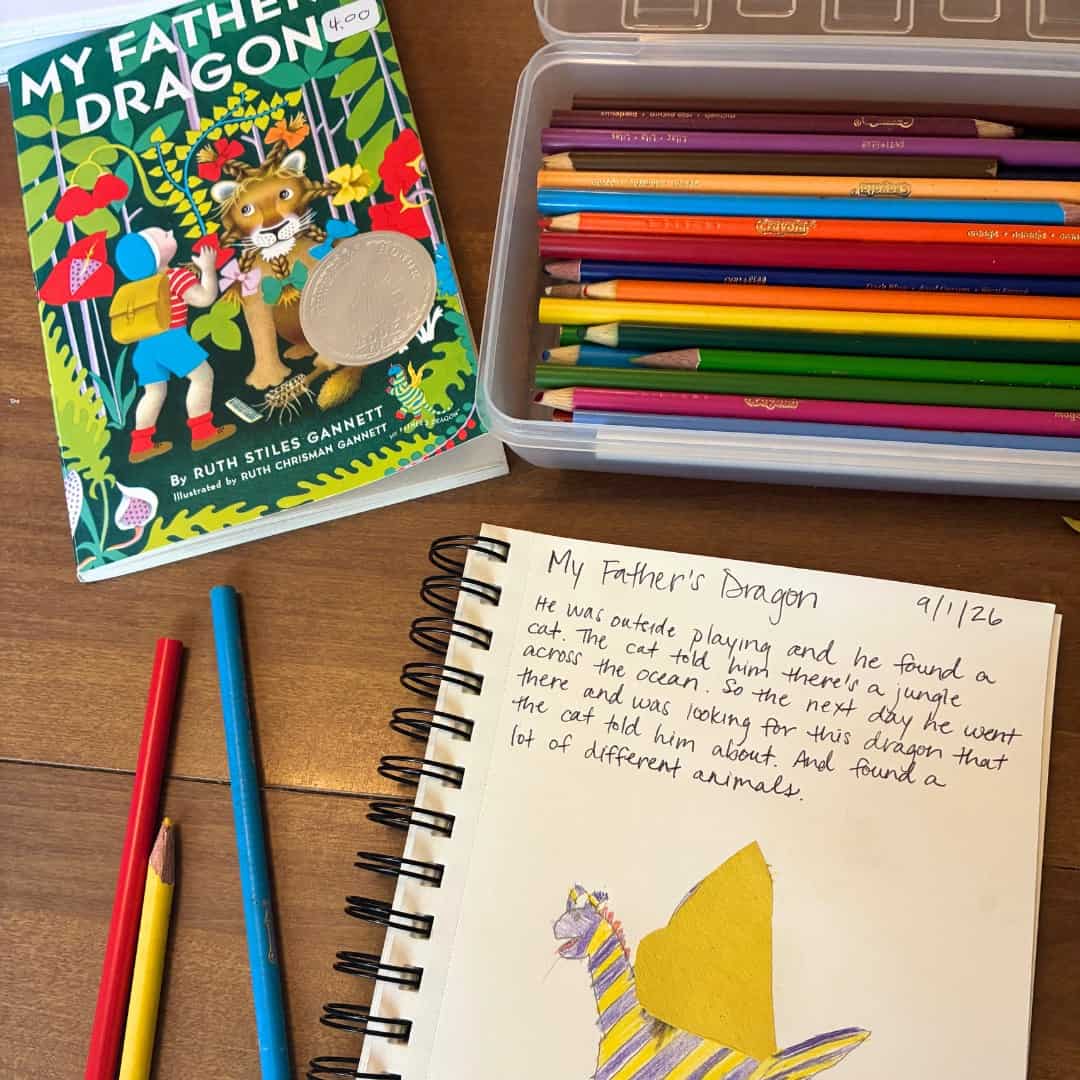 MY FATHER
DRAGON
4.00
By RUTH STILES GANNETT
Illustrated by RUTH CHRISMAN GANNETT
My Father's Dragon 9/1/26
He was outside playing and he found a
cat. The cat told him there's a jungle
across the ocean. So the next day he went
there and was looking for this dragon that
the cat told him about. And found a
lot of different animals.
Crayola